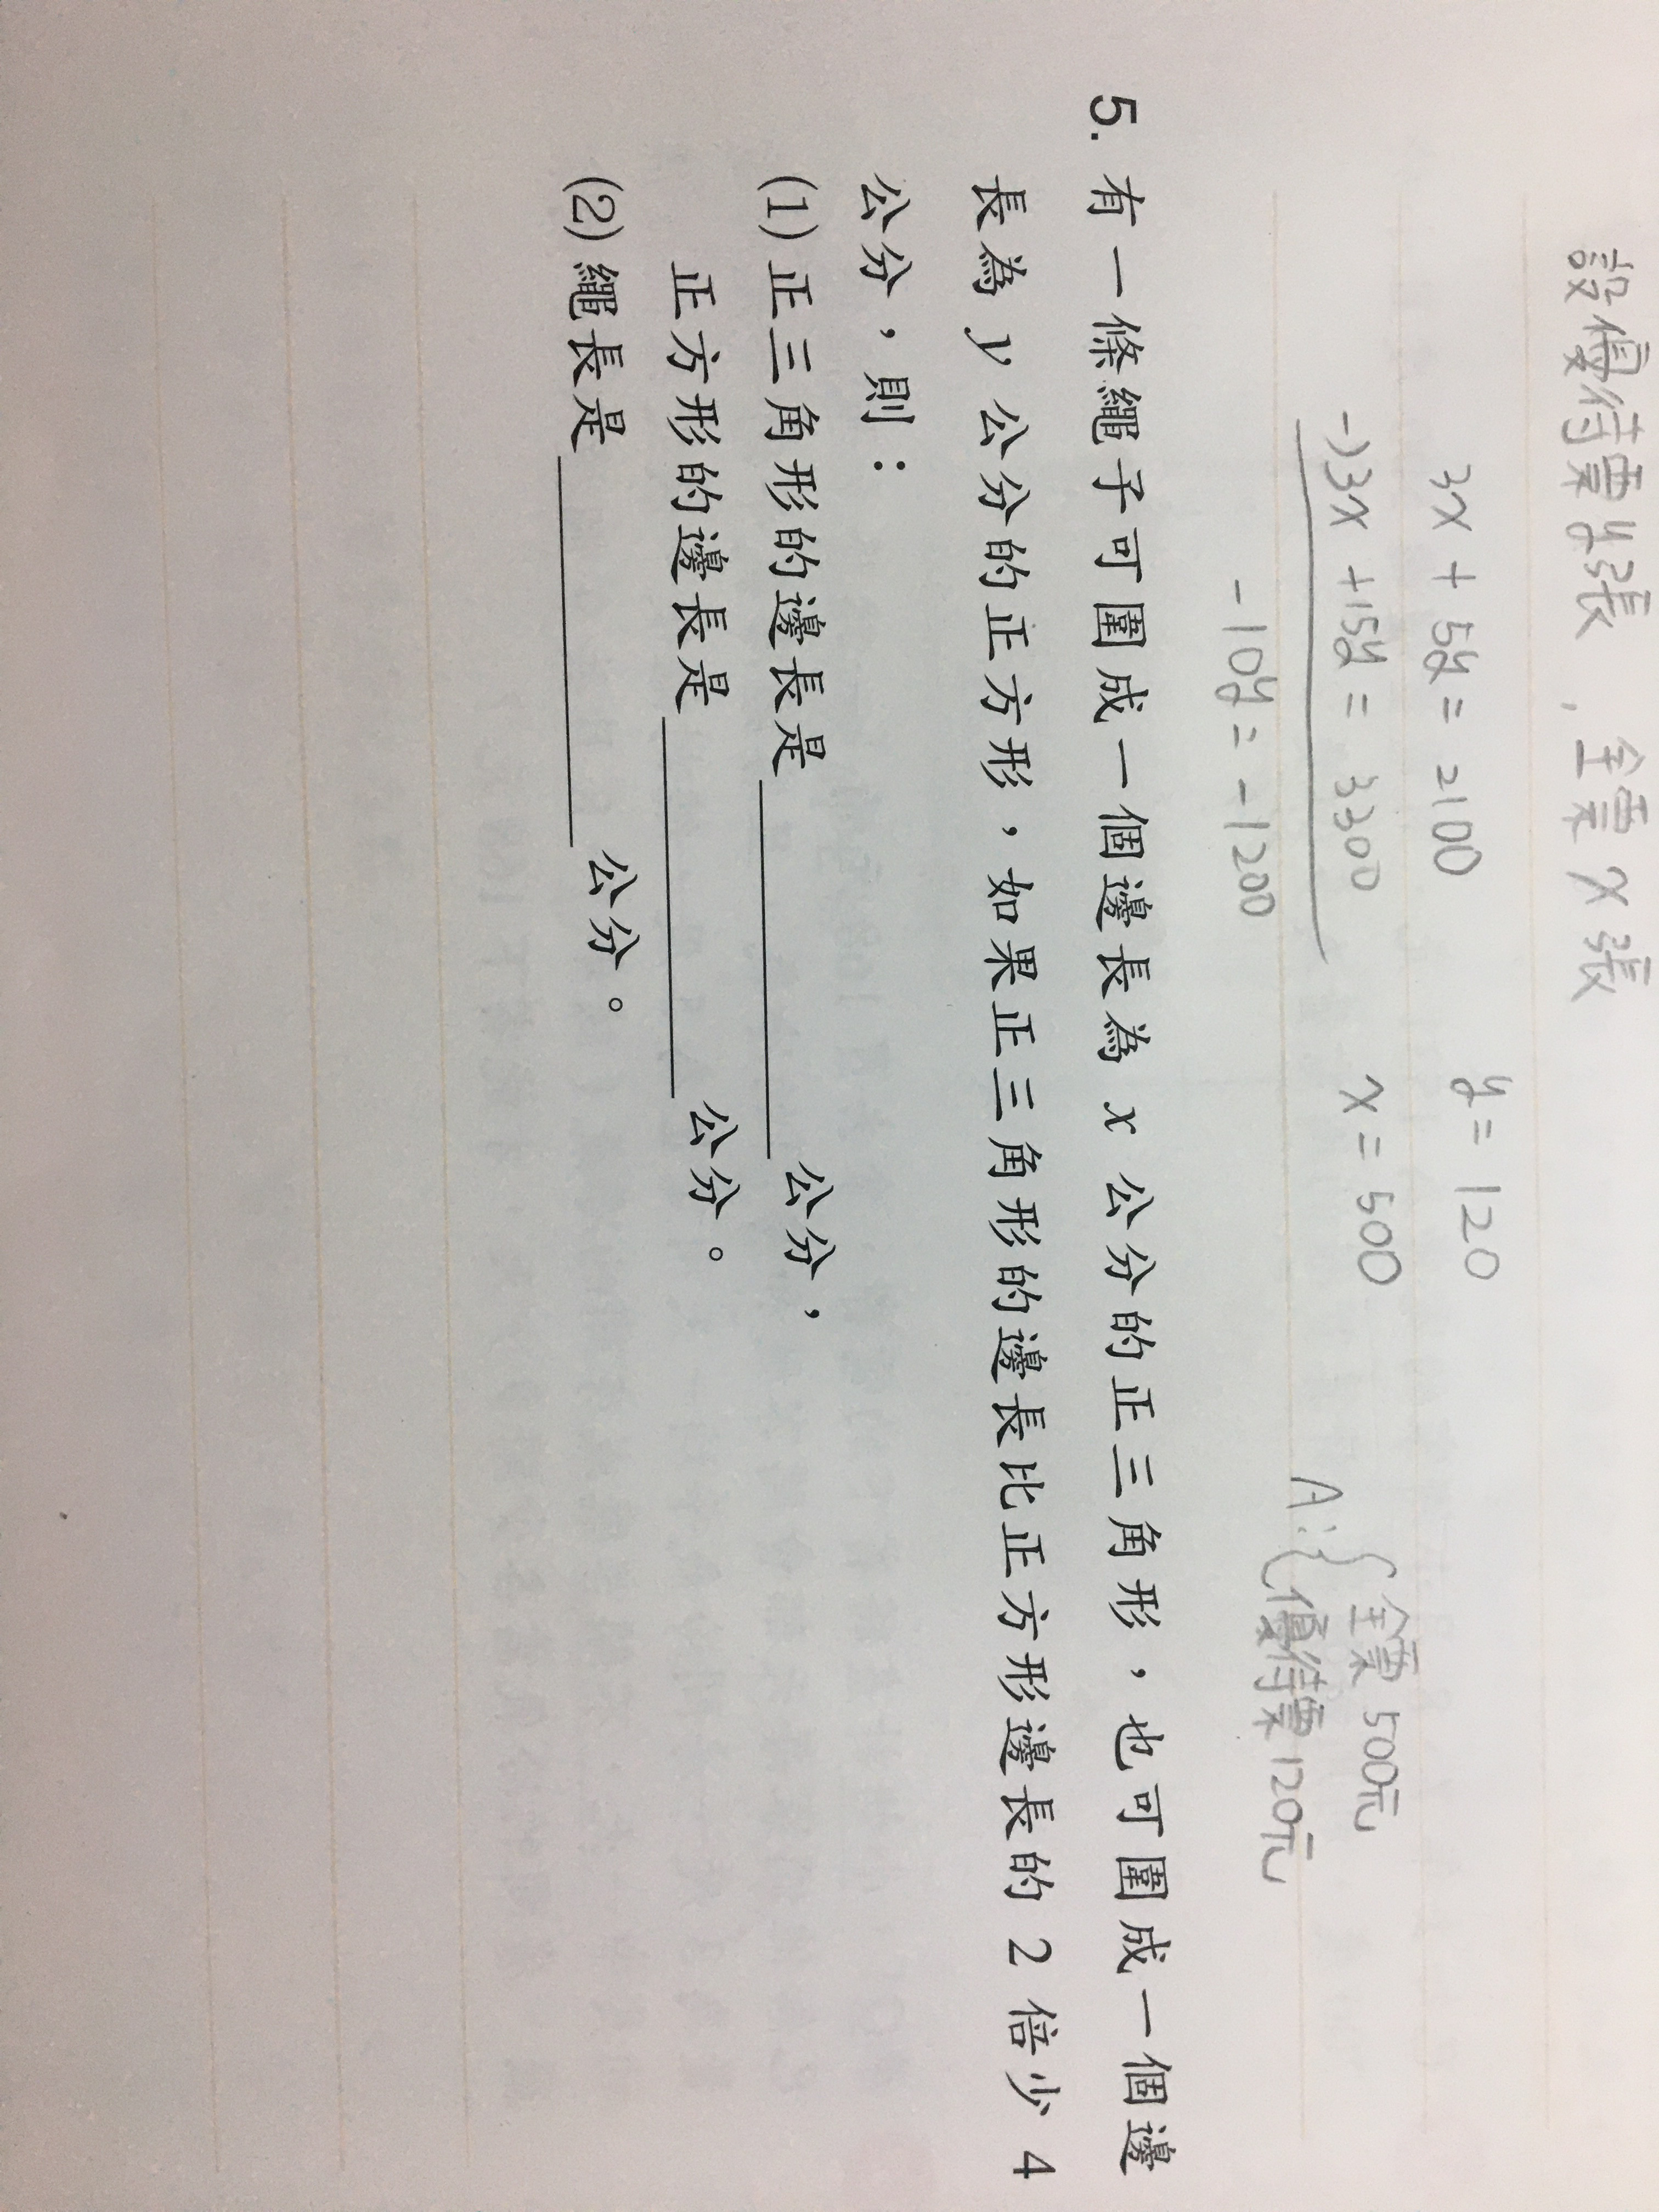 設優待票y張，全票x張
3x + 5y = 2100
y = 120
-)3x + 15y = 3300
x = 500
-10y = -1200
A:{全票 500元
優待票120元
5. 有一條繩子可圍成一個邊長為 x 公分的正三角形，也可圍成一個邊
長為 y 公分的正方形，如果正三角形的邊長比正方形邊長的 2 倍少 4
公分，則：
(1) 正三角形的邊長是＿＿＿＿＿公分，
正方形的邊長是＿＿＿＿＿公分。
(2) 繩長是＿＿＿＿＿公分。